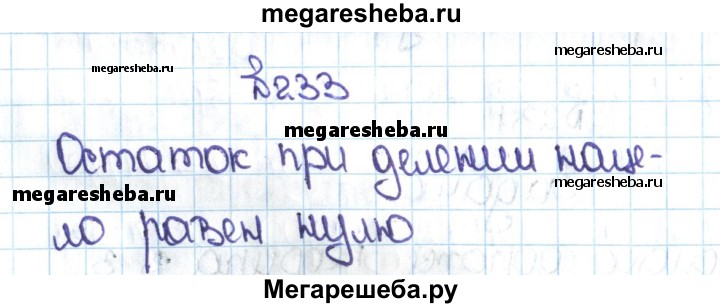 megaresheba.ru
megaresheba.ru
megaresheba.ru
№233
megaresheba.ru
Остаток при делении наце-
megaresheba.ru
megaresheba.ru
ло равен нулю
Мегарешеба.ру